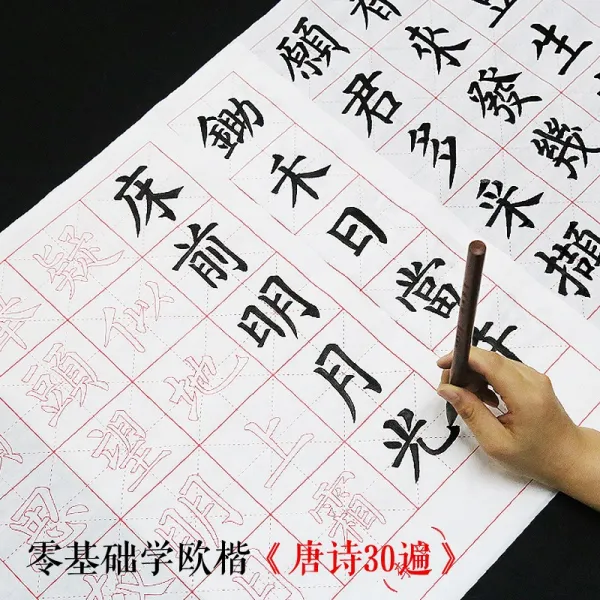 生
來發幾
願君多采擷
鋤禾日當午
床前明月光
疑似地上霜
頭望明
思
零基础学欧楷《唐诗30遍》